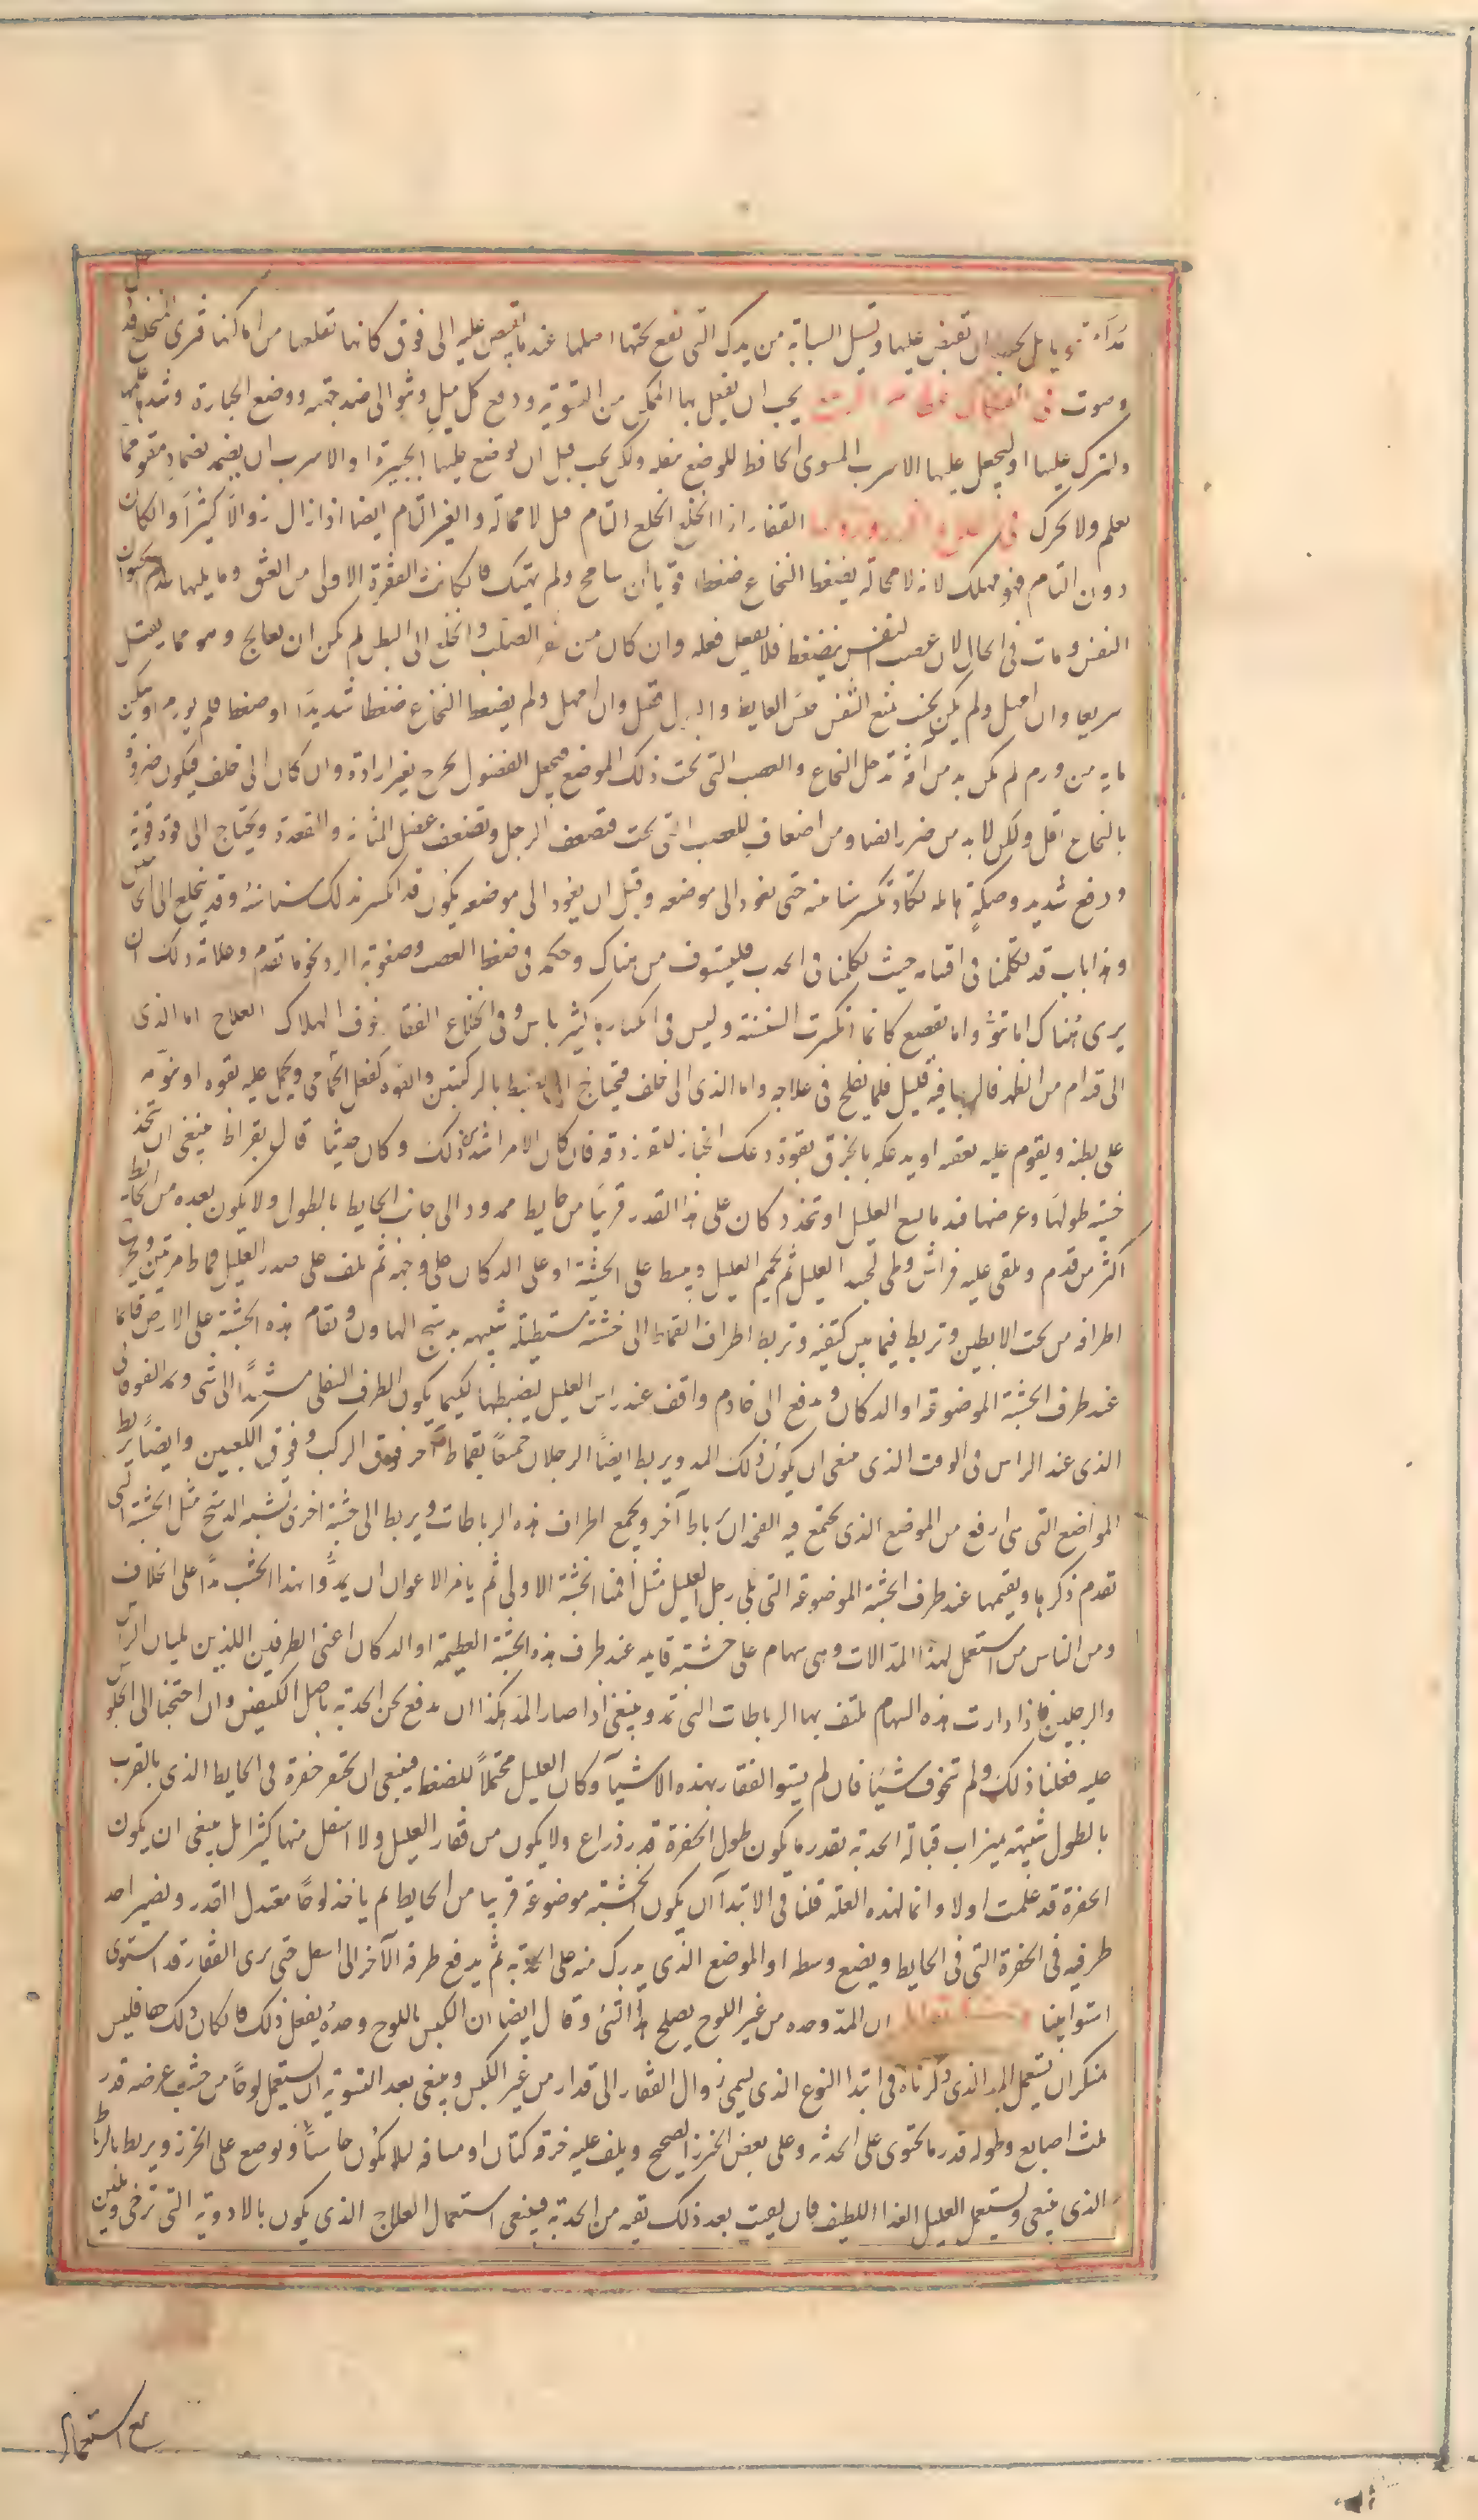 تقبض عليها وتشيل السبابة من يدك التى تقع تحتها اصلها عند ما تقبض عليه الى فوق كانها تقلعها من اماكنها فترى المنخلع قد
وصوت فى يجب ان يفعل بها الممكن من التسوية ودفع كل ميل ونتو الى ضد جهته ووضع الجبارة وشدها عليها
وتترك عليها او ليجعل عليها الاسرب المسوى الحافظ للوضع بفعله ولكن يجب قبل ان توضع عليها الجبيرة او الاسرب ان يضمد بضماد مقو مما
تعلم ولا يحرك فى القفار اذا انخلع الخلع التام قتل لا محالة والغير التام ايضا اذا زال زوالا كثيرا وان كان
دون التام فهو مهلك لانه لا محالة يضغط النخاع ضغطا قويا ان سامح ولم يهتك فان كانت الفقرة الاولى من العنق وما يليها عدم الحيوان
النفس ومات فى الحال لان عصب النفس ينضغط فلا يفعل فعله وان كان من الصلب وانخلع الى البطن لم يمكن ان يعالج وهو مما يقتل
سريعا وان امهل ولم يكن بحيث يمنع النفس حبس الغايط والبول فقتل وان امهل ولم يضغط النخاع ضغطا شديدا او ضغطا فلم يورم او سكن
ما به من ورم لم يكن بد من آفة تدخل النخاع والعصب التى تحت ذلك الموضع فيجعل الفضول يخرج بغير ارادة وان كان الى خلف فيكون ضرره
بالنخاع اقل ولكن لا بد من ضرر ايضا ومن اضعاف للعصب التى تحت فتضعف الرجل وتضعف عضل المثانة والمقعدة ويحتاج الى قوة قوية
ودفع شديد وصكة هايلة تكاد تنكسر سناسنه حتى تعود الى موضعه وقبل ان يعود الى موضعه يكون قد انكسر بذلك سناسنه وقد ينخلع الى الجانبين
وهذا باب قد تكلمنا فى اقسامه حيث تكلمنا فى الحدب فليستوف من هناك وحكمه فى ضغط العصب وصعوبة الرد نحو ما تقدم وعلامة ذلك ان
يرى هناك اما نتو واما تقصع كانما انكسرت السنسنة وليس فى انكسارها كثير باس وفى انخلاع الفقار خوف الهلاك العلاج اما الذى
الى قدام من الظهر فالرجا فيه قليل فلما يفلح فى علاجه واما الذى الى خلف فيحتاج الى ان يضبط بالركبتين والقوة كفعل الحمامى ويحمل عليه بقوة او نومه
على بطنه ويقوم عليه بعقبه او يدعكه بالخرق بقوة دعك الخباز للفرزدقة فان كان الامر اشد من ذلك وكان حديثا قال بقراط ينبغى ان تتخذ
خشبة طولها وعرضها قدر ما يسع العليل او تتخذ دكان على هذا القدر قريبا من حايط ممدود الى جانب الحايط بالطول ولا يكون بعده من الحايط
اكثر من قدم ويلقى عليه فراش وطى لجسد العليل ثم يحمم العليل ويبسط على الخشبة او على الدكان على وجهه ثم يلف على صدر العليل قماط مرتين ويخرج
اطرافه من تحت الابطين وتربط فيما بين كتفيه وتربط اطراف القماط الى خشبة مستطيلة شبيهه بدستج الهاون وتقام هذه الخشبة على الارض قايما
عند طرف الخشبة الموضوعة او الدكان ويدفع الى خادم واقف عند راس العليل ليضبطها لكيما يكون الطرف السفلى مستندا الى شى ويمد الفوقانى
الذى عند الراس فى الوقت الذى ينبغى ان يكون ذلك المد ويربط ايضا الرجلان جميعا بقماط آخر فوق الركب وفوق الكعبين وايضا يربط
المواضع التى هى ارفع من الموضع الذى يجتمع فيه الفخذان برباط آخر ويجمع اطراف هذه الرباطات ويربط الى خشبة اخرى تشبه الدستج مثل الخشبة التى
تقدم ذكرها ويقيمها عند طرف الخشبة الموضوعة التى تلى رجل العليل مثل اقمنا الخشبة الاولى ثم يامر الاعوان ان يمدوا بهذا الخشب مدا على الخلاف
ومن الناس من استعمل لهذا المد الات وهى سهام على خشبة قايمه عند طرف هذه الخشبة العظيمة او الدكان اعنى الطرفين اللذين يليان الراس
والرجلين فاذا دارت هذه السهام يلتف بها الرباطات التى تمد وينبغى اذا صار المد هكذا ان يدفع نحن الحدبة باصل الكفين وان احتجنا الى الجلوس
عليه فعلنا ذلك ولم نتخوف شيئا فان لم يستو الفقار بهذه الاشيآ وكان العليل محتملا للضغط فينبغى ان تحفر حفرة فى الحايط الذى بالقرب
بالطول شبيهة بميزاب قبالة الحدبة بقدر ما يكون طول الحفرة قدر ذراع ولا يكون من فقار العليل ولا اسفل منها كثيرا بل ينبغى ان يكون
الحفرة قد عملت اولا وانما لهذه العلة قلنا فى الابتدآ ان يكون الخشبة موضوعة قريبا من الحايط ثم ياخذ لوحا معتدل القدر ويصير احد
طرفيه فى الحفرة التى فى الحايط ويضع وسطه او الموضع الذى يدرك منه على الحدبة ثم يدفع طرفه الآخر الى اسفل حتى يرى الفقار قد استوى
استوا بينا ان المد وحده من غير اللوح يصلح هذا الشى وقال ايضا ان الكبس باللوح وحده يفعل ذلك فان كان ذلك حقا فليس
منكر ان يستعمل المد الذى ذكرناه فى ابتدا النوع الذى يسمى زوال الفقار الى قدام من غير الكبس وينبغى بعد التسوية ان يستعمل لوحا من خشب عرضه قدر
ثلث اصابع وطوله قدر ما يحتوى على الحدبة وعلى بعض الخرز الصحيح ويلف عليه خرقة كتان او مشاقة ليلا يكون جاسيا ويوضع على الخرز ويربط بالرباط
الذى ينبغى ويستعمل العليل الغذا اللطيف فان بقيت بعد ذلك بقية من الحدبة فينبغى استعمال العلاج الذى يكون بالادوية التى ترخى وتلين
مع استعمال